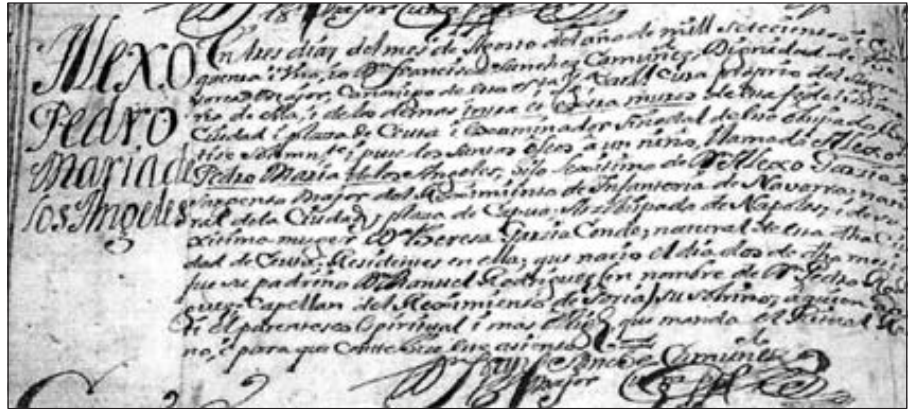 Alexo
Pedro
Maria de
los Angeles
En tres días del mes de Agosto del año de mill setecientos i
quenta i uno, io Dn. Francisco Sanchez Camuñez Dignidad de
maior, Canonigo de esta Sta. Cura proprio del
de ella, i de los demas intra et extra muros de esta fidelissima
Ciudad i plaza de Ceuta i Examinador Sinodal de su obispado
solemnte. i puse los Santos oleos a un niño, llamado Alexo
Pedro Maria de los Angeles, hijo lexitimo de Dn. Alexo Garsia
Sargento Maior del Reximiento de Infanteria de Navarra,
ral de la Ciudad, i plaza de Capua, Arzobispado de Napoles, i de su
xitima muger Da. Theresa Garsia Conde, natural de esta dha
dad de Ceuta, Residentes en ella; que nacio el día dos de dho mes, i
fue su padrino Dn. Manuel Rodriguez en nombre de Dn. Pedro
guez, Capellan del Reximiento de Soria, su sobrino, a quien
el parentesco espiritual i mas que manda el Ritual
no, i para que conste hise este asiento
Sanchez Camuñez
maior